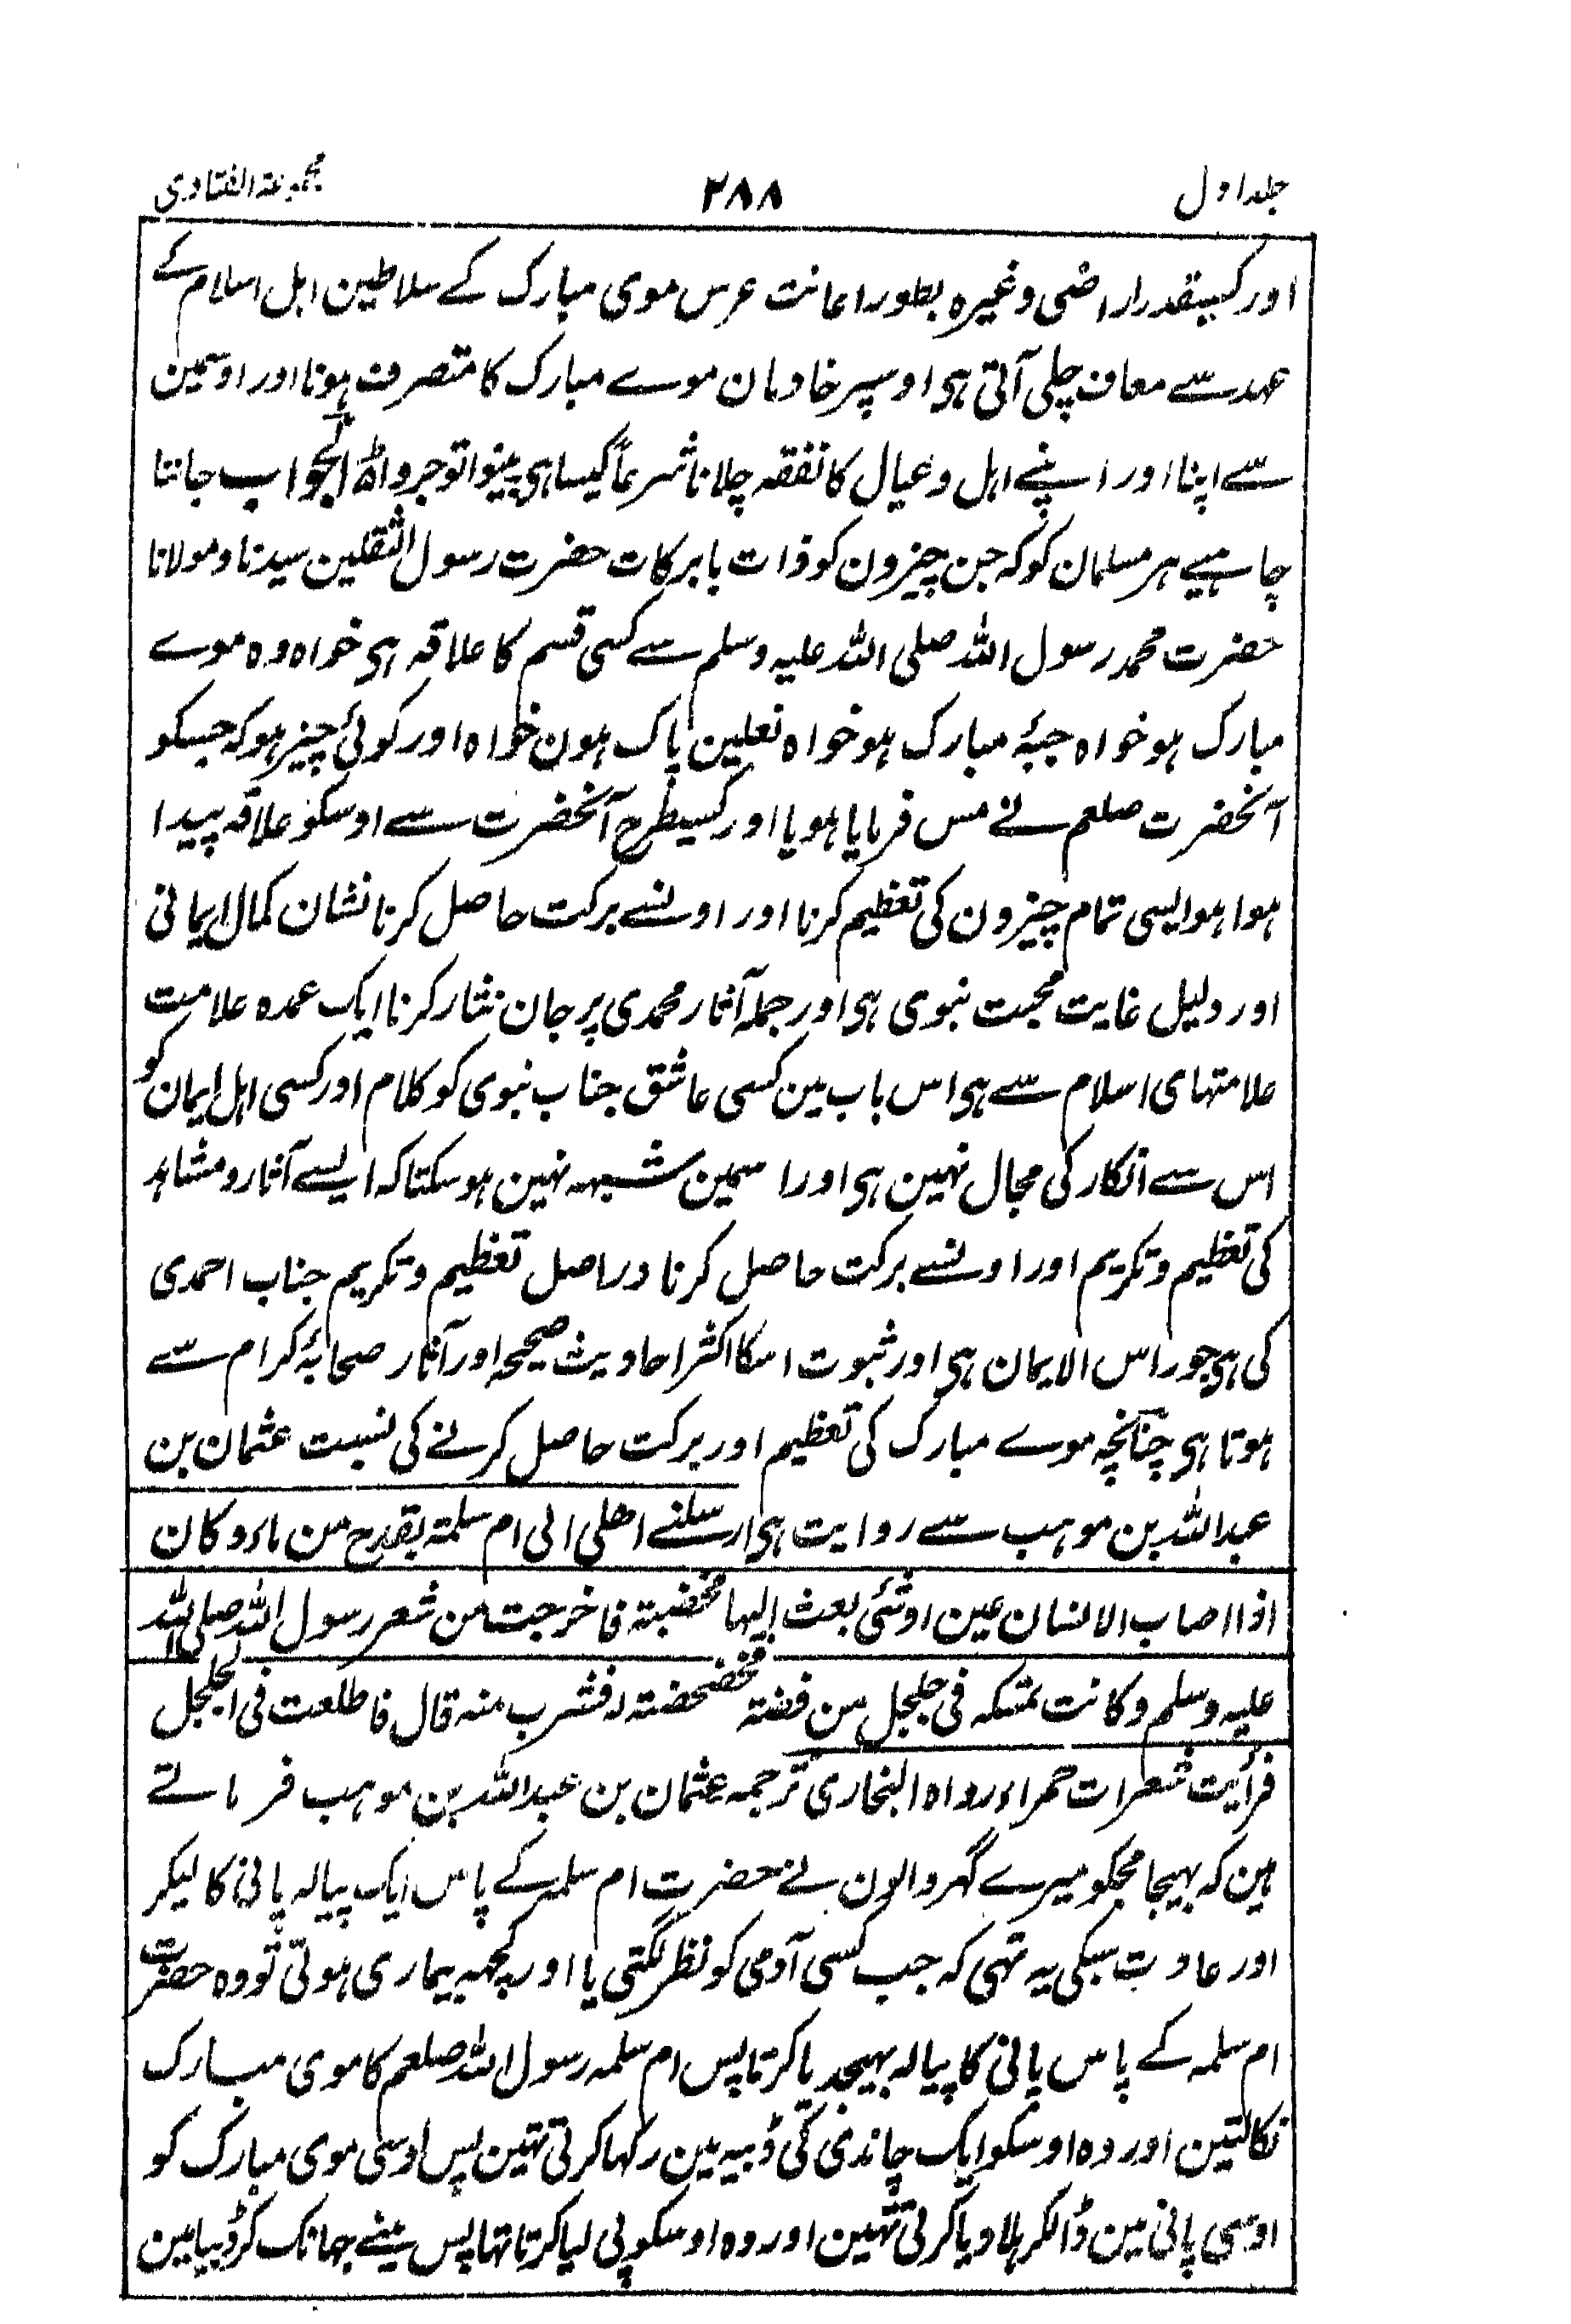 جلد اول
٢٨٨
مجموعۃ الفتاوی
اور کسیقدر اراضی وغیرہ بطور اعانت عرس موی مبارک کے سلاطین اہل اسلام کے
عہد سے معاف چلی آتی ہی اوسپر خادمان موے مبارک کا متصرف ہونا اور اوسمین
سے اپنا اور اپنے اہل وعیال کا نفقہ چلانا شرعاً کیسا ہی بینوا توجروا الجواب جاننا
چاہیے ہر مسلمان کو کہ جن چیزون کو ذات بابرکات حضرت رسول الثقلین سیدنا ومولانا
حضرت محمد رسول اللہ صلی اللہ علیہ وسلم سے کسی قسم کا علاقہ ہی خواہ وہ موے
مبارک ہو خواہ جبۂ مبارک ہو خواہ نعلین پاک ہون خواہ اور کوئی چیز ہو کہ جسکو
آنحضرت صلعم نے مس فرمایا ہو یا اور کسیطرح آنحضرت سے اوسکو علاقہ پیدا
ہوا ہو ایسی تمام چیزون کی تعظیم کرنا اور اونسے برکت حاصل کرنا نشان کمال ایمانی
اور دلیل غایت محبت نبوی ہی اور جملہ آثار محمدی پر جان نثار کرنا ایک عمدہ علامت
علامتہای اسلام سے ہی اس باب مین کسی عاشق جناب نبوی کو کلام اور کسی اہل ایمان کو
اس سے انکار کی مجال نہین ہی اور اسمین شبہہ نہین ہو سکتا کہ ایسے آثار و مشاہد
کی تعظیم وتکریم اور اونسے برکت حاصل کرنا در اصل تعظیم وتکریم جناب احمدی
کی ہی جو راس الایمان ہی اور ثبوت اسکا اکثر احادیث صحیحہ اور آثار صحابۂ کرام سے
ہوتا ہی چنانچہ موے مبارک کی تعظیم اور برکت حاصل کرنے کی نسبت عثمان بن
عبد اللہ بن موہب سے روایت ہی ارسلنے اھلی الی ام سلمۃ بقدح من ماء وکان
اذا اصاب الانسان عین او شئی بعث الیہا مخضبۃ فاخرجت من شعر رسول اللہ صلی اللہ
علیہ وسلم وکانت تمسکہ فی جلجل من فضۃ فخضخضتہ لہ فشرب منہ قال فاطلعت فی الجلجل
فرأیت شعرات حمراء رواہ البخاری ترجمہ عثمان بن عبد اللہ بن موہب فرماتے
ہین کہ بہیجا مجکو میرے گہر والون نے حضرت ام سلمہ کے پاس ایک پیالہ پانی کا لیکر
اور عادت سبکی یہ تہی کہ جب کسی آدمی کو نظر لگتی یا اور کچہہ بیماری ہوتی تو وہ حضرت
ام سلمہ کے پاس پانی کا پیالہ بہیجدیا کرتا پس ام سلمہ رسول اللہ صلعم کا موی مبارک
نکالتین اور وہ اوسکو ایک چاندی کی ڈبیہ مین رکہا کرتی تہین پس اوسی موی مبارک کو
اوسی پانی مین ڈالکر ہلا دیا کرتی تہین اور وہ اوسکو پی لیا کرتا تہا پس مینے جہانک کر ڈبیا مین